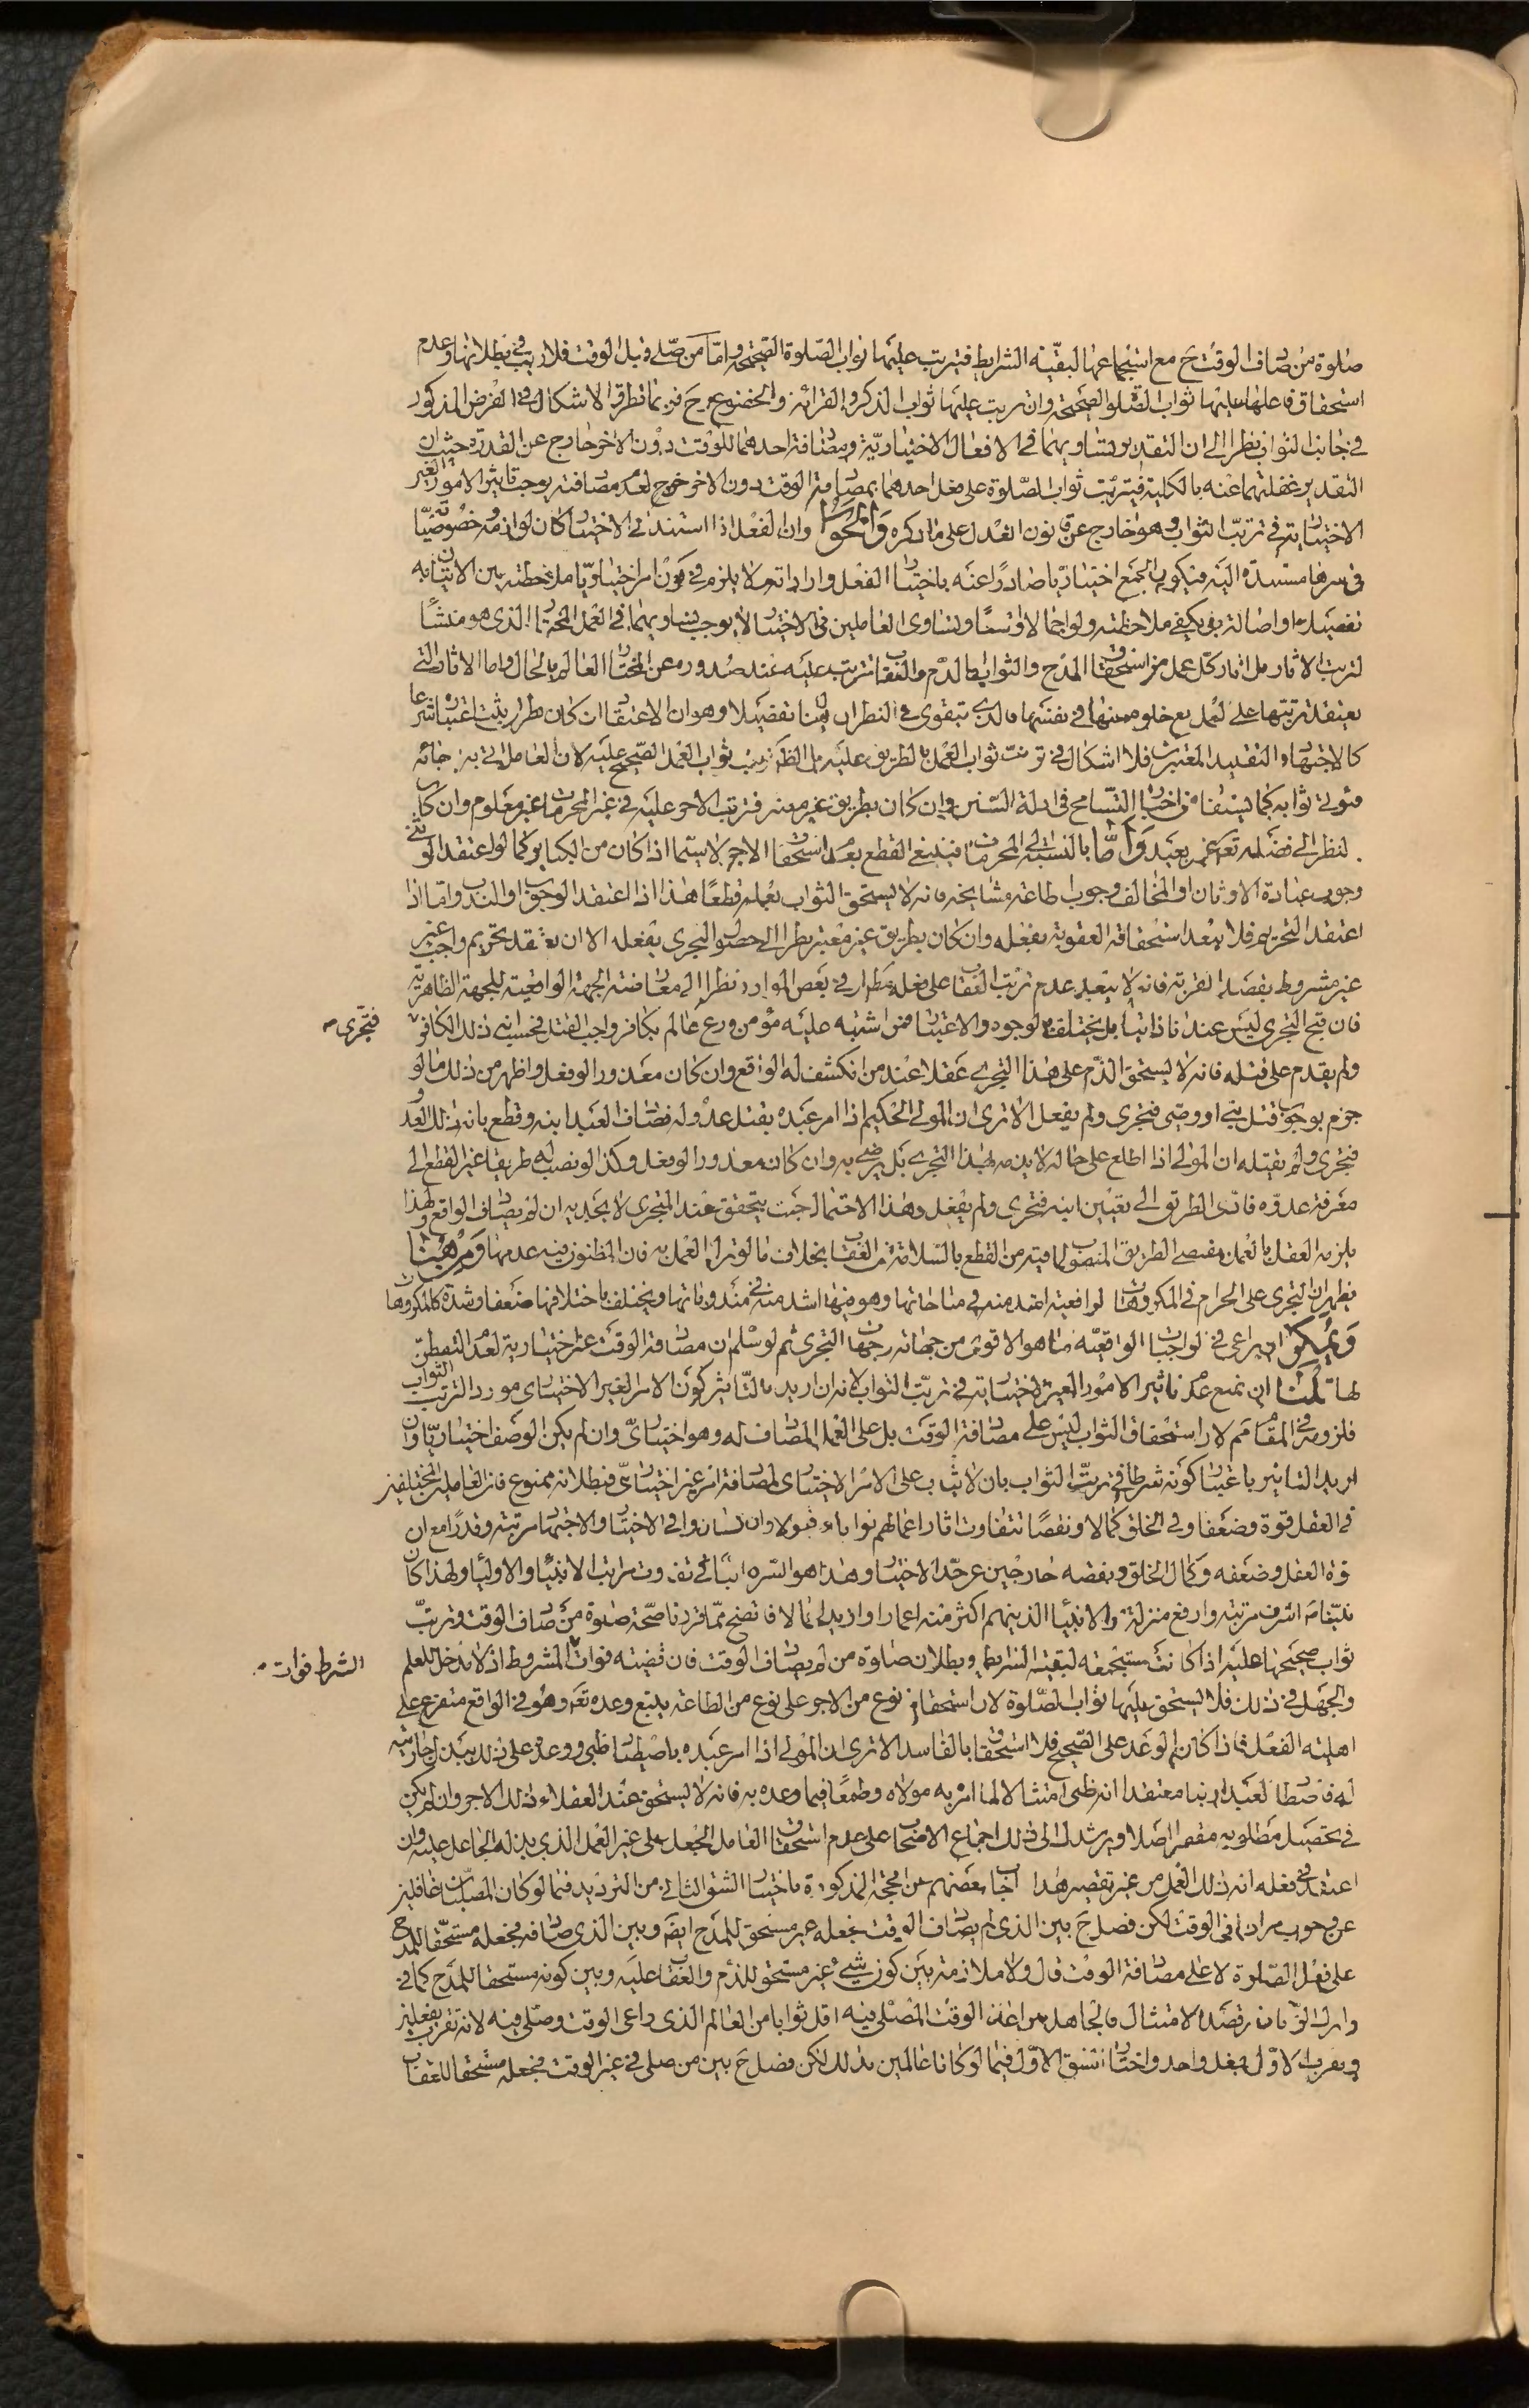 صلوة من صادف الوقت ح مع استجماعها لبقية الشرايط فيترتب عليها ثواب الصلوة الصحيحة واما من صلى قبل الوقت فلا ريب في بطلانها وعدم
استحقاق فاعلها عليها ثواب الصلوة الصحيحة وان ترتب عليها ثواب الذكر والقرائة والخضوع وح فربما تطرق الاشكال في الفرض المذكور
في جانب الثواب نظرا الى ان التقدير تساويهما في الافعال الاختيارية ومصادفة احدهما للوقت دون الاخر خارج عن القدرة حيث ان
التقدير غفلتهما عنه بالكلية فيترتب ثواب الصلوة على فعل احدهما بمصادفة الوقت دون الاخر خروج لعدم مصادفته يوجب تاثير الامور الغير
الاختيارية في ترتب الثواب وهو خارج عن قانون العدل على ما ذكره والجواب ان الفعل اذا استند الى الاختيار كان لوازمه وخصوصياته
مستندة اليه فيكون الجميع اختياريا صادرا عنه باختيار الفعل وارادته ولا يلزم في كون امر اختياريا ملاحظته بين الاتيان به
تفصيلا واصالة بل يكفي ملاحظته ولو اجمالا وتبعا وتساوى العاملين في الاختيار لا يوجب تساويهما في العمل المختار الذي هو منشأ
لترتب الاثار بل اثار كل عمل من استحقاق المدح والثواب والذم والعقاب تترتب عليه عند صدوره عن المختار العالم بالحال واما الاثار التي
يعتقد ترتبها على العمل مع خلوه عنها في نفسها فالذى يتقوى في النظر ان هنا تفصيلا وهو ان الاعتقاد ان كان بطريق ثبت اعتباره شرعا
كالاجتهاد والتقليد المعتبرين فلا اشكال في ترتب ثواب العمل بالطريق عليه بل الظاهر ترتب ثواب العمل الصحيح عليه لان العامل اتى به رجاء
ثوابه كما يستفاد من اخبار التسامح في ادلة السنن وان كان بطريق غير معتبر فترتب الاجر عليه في غير المحرمات غير معلوم وان كان
بالنظر الى فضله تعالى غير بعيد واما بالنسبة الى المحرمات فينبغي القطع بعدم استحقاق الاجر لا سيما اذا كان من الكباير كما لو اعتقد الوثني
وجوب عبادة الاوثان او المخالف وجوب اطاعة مشايخه فانه لا يستحق الثواب بعمله قطعا هذا اذا اعتقد الوجوب او الندب واما اذا
اعتقد التحريم فلا يبعد استحقاقه العقوبة بفعله وان كان بطريق غير معتبر نظرا الى حصول التجري بفعله الا ان يعتقد تحريم واجب غير
غير مشروط بقصد القربة فانه لا يبعد عدم ترتب العقاب على فعله مطلقا او في بعض الموارد نظرا الى معارضة الجهة الواقعية للجهة الظاهرية
فان قبح التجري ليس عندنا ذاتيا بل يختلف بالوجوه والاعتبار فمن اشتبه عليه مؤمن ورع عالم بكافر واجب القتل فحسب انه ذلك الكافر
فتجرى
ولم يقدم على قتله فانه لا يستحق الذم على هذا التجرى عقلا عند من انكشف له الواقع وان كان معذورا لو فعل واظهر من ذلك ما لو
جزم بوجوب قتل نبى او وصى فتجرى ولم يفعل الا ترى ان المولى الحكيم اذا امر عبده بقتل عدو له فصادف العبد ابنه وقطع بانه ذلك العدو
فتجرى ولم يقتله ان المولى اذا اطلع على حاله لا يذمه بهذا التجرى بل يرضى به وان كان معذورا لو فعل وكذا لو نصب له طريقا غير القطع الى
معرفة عدوه فادى الطريق الى تعيين ابنه فتجرى ولم يفعل وهذا الاحتمال حيث يتحقق عند المتجرى لا يجديه ان لم يصادف الواقع ولهذا
يلزمه العقل بالعمل بمقتضى الطريق المنصوب لما فيه من القطع بالسلامة من العقاب بخلاف ما لو ترك العمل به فان المظنون فيه عدمها ومن هنا
يظهر ان التجرى على الحرام في المكروهات الواقعية اشد منه في مباحاتها وهو فيها اشد منه في مندوباتها ويختلف باختلافها ضعفا وشدة كالمكروهات
ويمكن ان يراعى في الواجبات الواقعية ما هو الاقوى من جهاته وجهات التجرى ثم لو سلم ان مصادفة الوقت غير اختيارية لعدم التفطن
لها قلنا ان نمنع عدم تاثير الامور الغير الاختيارية في ترتب الثواب لانه ان اريد بالتاثير كون الامر الغير الاختيارى مورد الترتب الثواب
فلزومه في المقام مم لان استحقاق الثواب ليس على مصادفة الوقت بل على العمل المصادف له وهو اختيارى وان لم يكن الوصف اختياريا وان
اريد التاثير باعتبار كونه شرطا في ترتب الثواب بان لا يثاب على الامر الاختيارى لمصادفة امر غير اختيارى فبطلانه ممنوع فان العاملين المختلفين
في العقل قوة وضعفا وفي الخلق كمالا ونقصا تتفاوت اثار اعمالهم ثوابا وقبولا وان تساووا في الاختيار والاجتهاد مرتبة وقدرا مع ان
قوة العقل وضعفه وكمال الخلق ونقصه خارجين عن حد الاختيار وهذا هو السر في تفاوت مراتب الانبياء والاولياء ولهذا كان
نبينا اشرف مرتبة وارفع منزلة والانبياء الذين هم اكثر منه اعمارا وازيد اعمالا فاتضح مما قررنا صحة صلوة من صادف الوقت وترتب
ثواب صحيحها عليه اذا كانت مستجمعة لبقية الشرايط وبطلان صلوة من لم يصادف الوقت فان قضية فوات المشروط اذ لا مدخل للعلم
الشرط فوات
والجهل في ذلك فلا يستحق عليها ثواب الصلوة لان استحقاق نوع من الاجر على نوع من الطاعة يتبع وعده تعالى وهو في الواقع متفرع على
اهلية الفعل فاذا كان الوعد على الصحيح فلا استحقاق بالفاسد الا ترى ان المولى اذا امر عبده باصطياد ظبى ووعده على ذلك
له فاصطاد العبد ارنبا معتقدا انه ظبى امتثالا لما امر به مولاه وطمعا فيما وعده به فانه لا يستحق عند العقلاء ذلك الاجر وان لم يكن
في تحصيل مطلوبه مقصرا اصلا ويرشدك الى ذلك اجماع الاصحاب على عدم استحقاق العامل الجعل على غير العمل الذي بذله الجاعل عليه وان
اعتقد في فعله انه ذلك العمل من غير تقصير هذا اجاب بعضهم عن الحجة المذكورة باختيار الشق الثانى من الترديد فيما لو كان المصليان غافلين
عن وجوب مراعاة الوقت لكن فصل ح بين الذى لم يصادف الوقت فجعله غير مستحق للمدح ايض وبين الذى صادفه فجعله مستحقا للمدح
على فعل الصلوة لا على مصادفة الوقت قال ولا ملازمة بين كون شىء غير مستحق للذم والعقاب عليه وبين كونه مستحقا للمدح كما في
الامتثال فالجاهل من اعاد الوقت المصلى فيه اقل ثوابا من العالم الذى راعى الوقت وصلى فيه لانه تقرب بفعلين
وتقرب الاول بفعل واحد واختار الشق الاول فيما لو كانا عالمين بذلك لكن فصل ح بين من صلى في غير الوقت فجعله مستحقا للعقاب